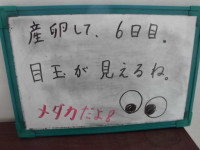 産卵して、6日目。
目玉が見えるね。
メダカだよ♪